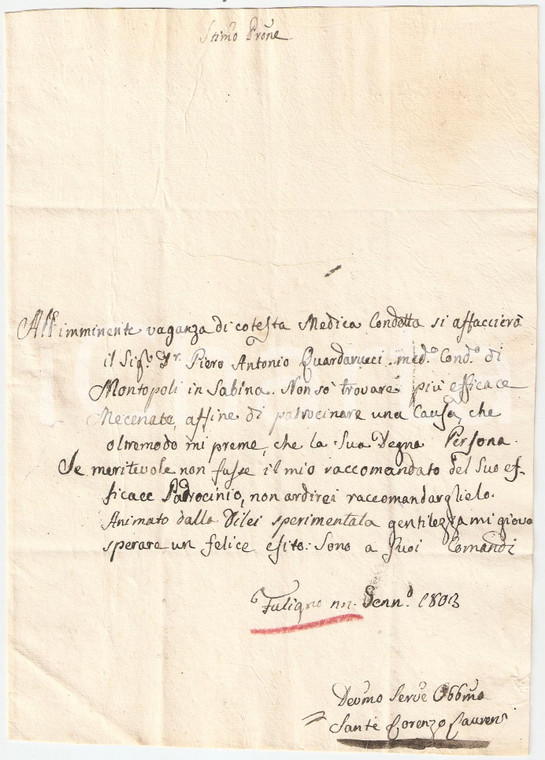 Stimo Prõne
All'imminente vaganza di cotesta Medica Condotta si affaccierà
il Sigr. Dr. Piero Antonio Quardarucci med.o Cond.o di
Montopoli in Sabina. Non so trovare più efficace
Mecenate, affine di patrocinare una Causa, che
oltremodo mi preme, che la Sua Degna Persona.
Se meritevole non fusse il mio raccomandato del Suo ef-
ficace Padrocinio, non ardirei raccomandarglielo.
Animato dalla Di lei sperimentata gentilezza mi giova
sperare un felice esito: Sono a Suoi Comandi
Fuligno Genn.o 1803
Devmo Serve Obbmo
Sante Lorenzo Laurenti